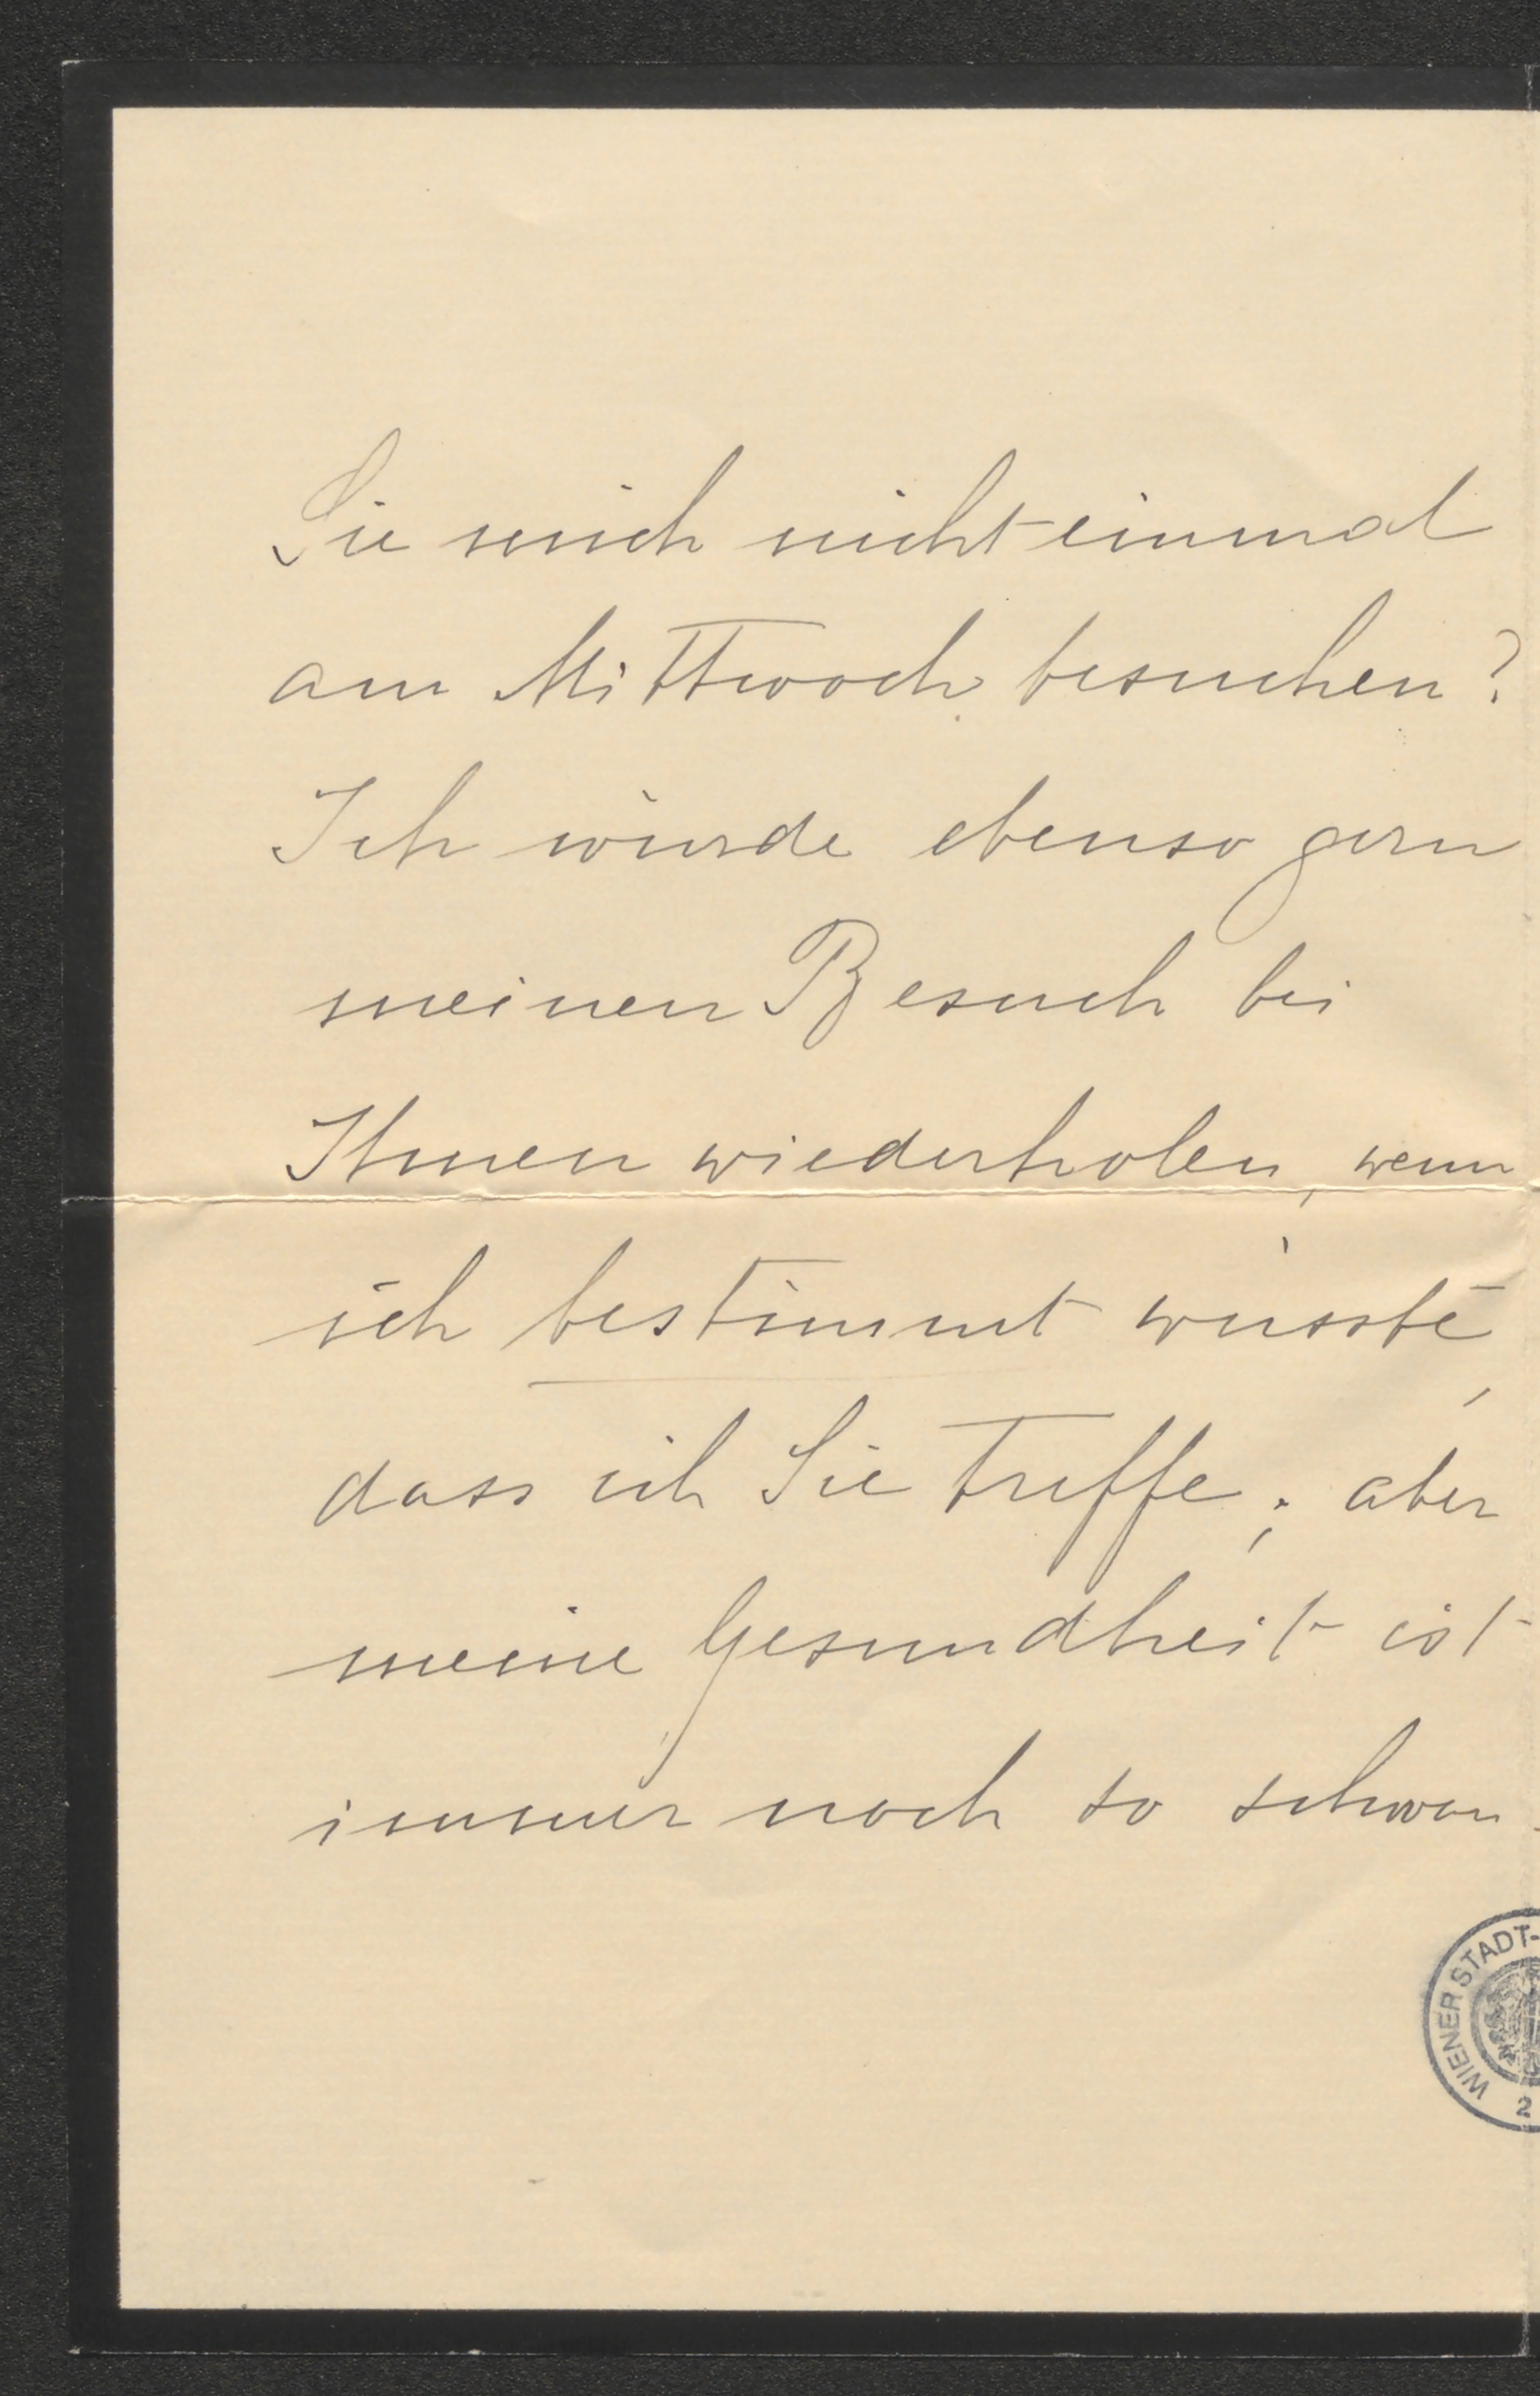 Sie mich nicht einmal
am Mittwoch besuchen?
Ich würde ebenso gern
meinen Besuch bei
Ihnen wiederholen, wenn
ich bestimmt wüsste,
dass ich Sie treffe; aber
meine Gesundheit ist
immer noch so schwan-
WIENER STADT-
2